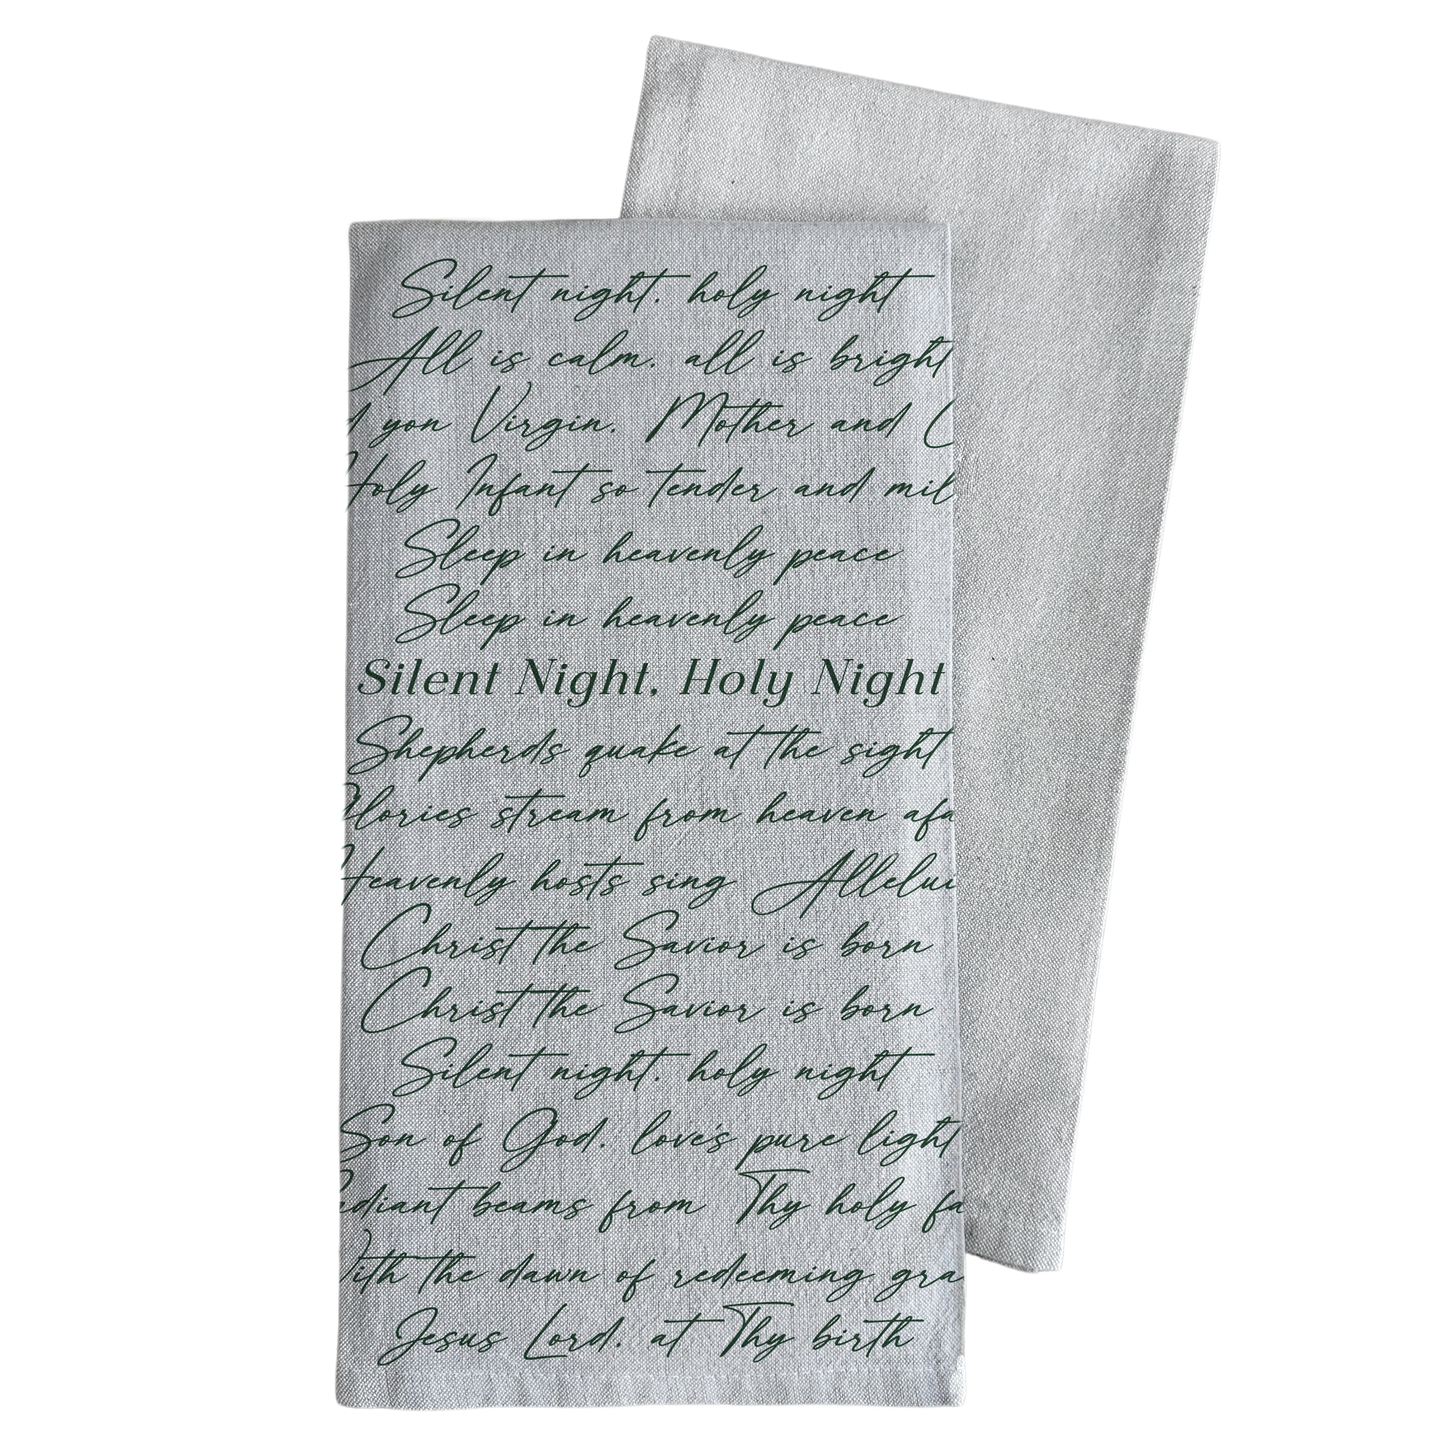 Silent night, holy night
All is calm, all is bright
yon Virgin, Mother and
Holy Infant so tender and mil
Sleep in heavenly peace
Sleep in heavenly peace
Silent Night, Holy Night
Shepherds quake at the sight
Glories stream from heaven afa
Heavenly hosts sing Allelui
Christ the Savior is born
Christ the Savior is born
Silent night, holy night
Son of God, love's pure light
adiant beams from Thy holy fa
ith the dawn of redeeming gra
Jesus Lord, at Thy birth